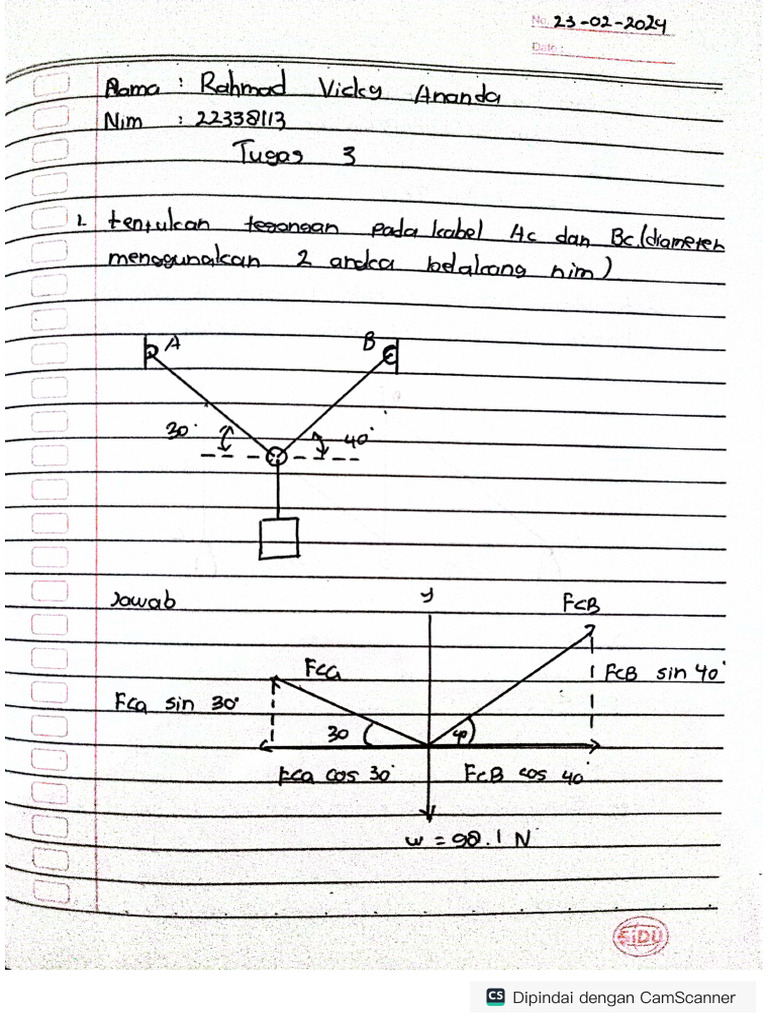 No. 23-02-2024
Date:
Nama : Rahmad Vicky Ananda
Nim : 22338113
Tugas 3
1. tentukan tegangan pada kabel Ac dan Bc (diameter
menggunakan 2 angka belakang nim)
A B
30° 40°
Jawab
y FCB
FCa FCB sin 40°
FCa sin 30°
30 40
FCa cos 30° FCB cos 40°
w = 98.1 N
SIDU
CS Dipindai dengan CamScanner